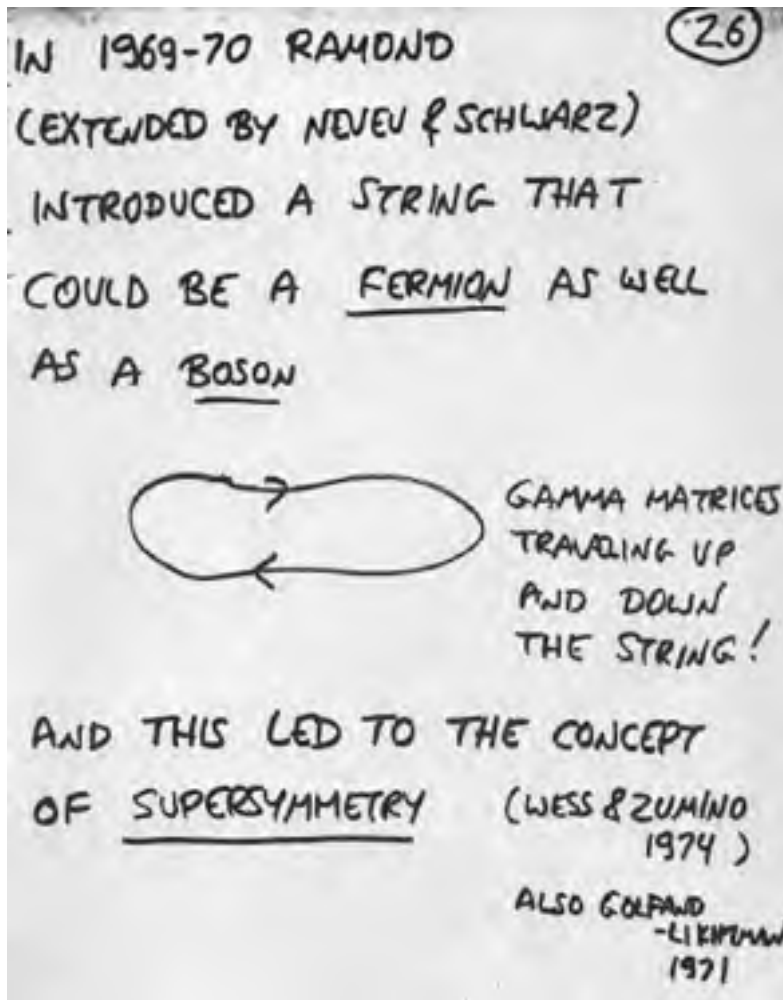 IN 1969-70 RAMOND
26
(EXTENDED BY NEVEU & SCHWARZ)
INTRODUCED A STRING THAT
COULD BE A FERMION AS WELL
AS A BOSON
GAMMA MATRICES
TRAVELING UP
AND DOWN
THE STRING!
AND THIS LED TO THE CONCEPT
OF SUPERSYMMETRY
(WESS & ZUMINO
1974)
ALSO GOLFAND
-LIKHTMAN
1971